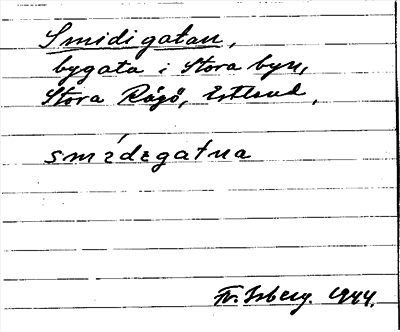 Smidigatan,
bygata i Stora byn,
Stora Rågö, Estland,
smidegatna
Fr. Isberg. 1944.